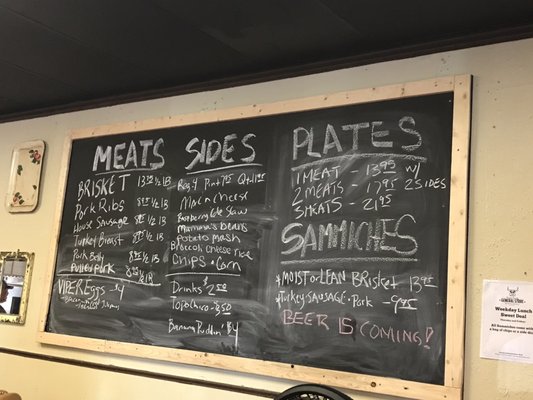 MEATS
BRISKET 13.95 1/2 LB
Pork Ribs 8.95 1/2 LB
House Sausage 8.95 1/2 LB
Turkey Breast 8.95 1/2 LB
Pork Belly 8.95 1/2 LB
Pulled pork 8.95 1/2 LB
VIPER Eggs - 4
SIDES
Reg. 4 Pint 7.95 Qt. 11.95
Mac n cheese
Raspberry Cole Slaw
Mamma's beans
Potato mash
Broccoli cheese rice
CHIPS • Corn
Drinks $2.50
Topo Chico $3.50
Banana Puddin' $4
PLATES
1 MEAT - 13.95 W/
2 MEATS - 17.95 2 SIDES
3 MEATS - 21.95
SAMMICHES
MOIST or LEAN BRisket 13.95
Turkey • SAUSAGE • Pork - 9.95
BEER IS COMING!
Weekday Lunch
Sweet Deal